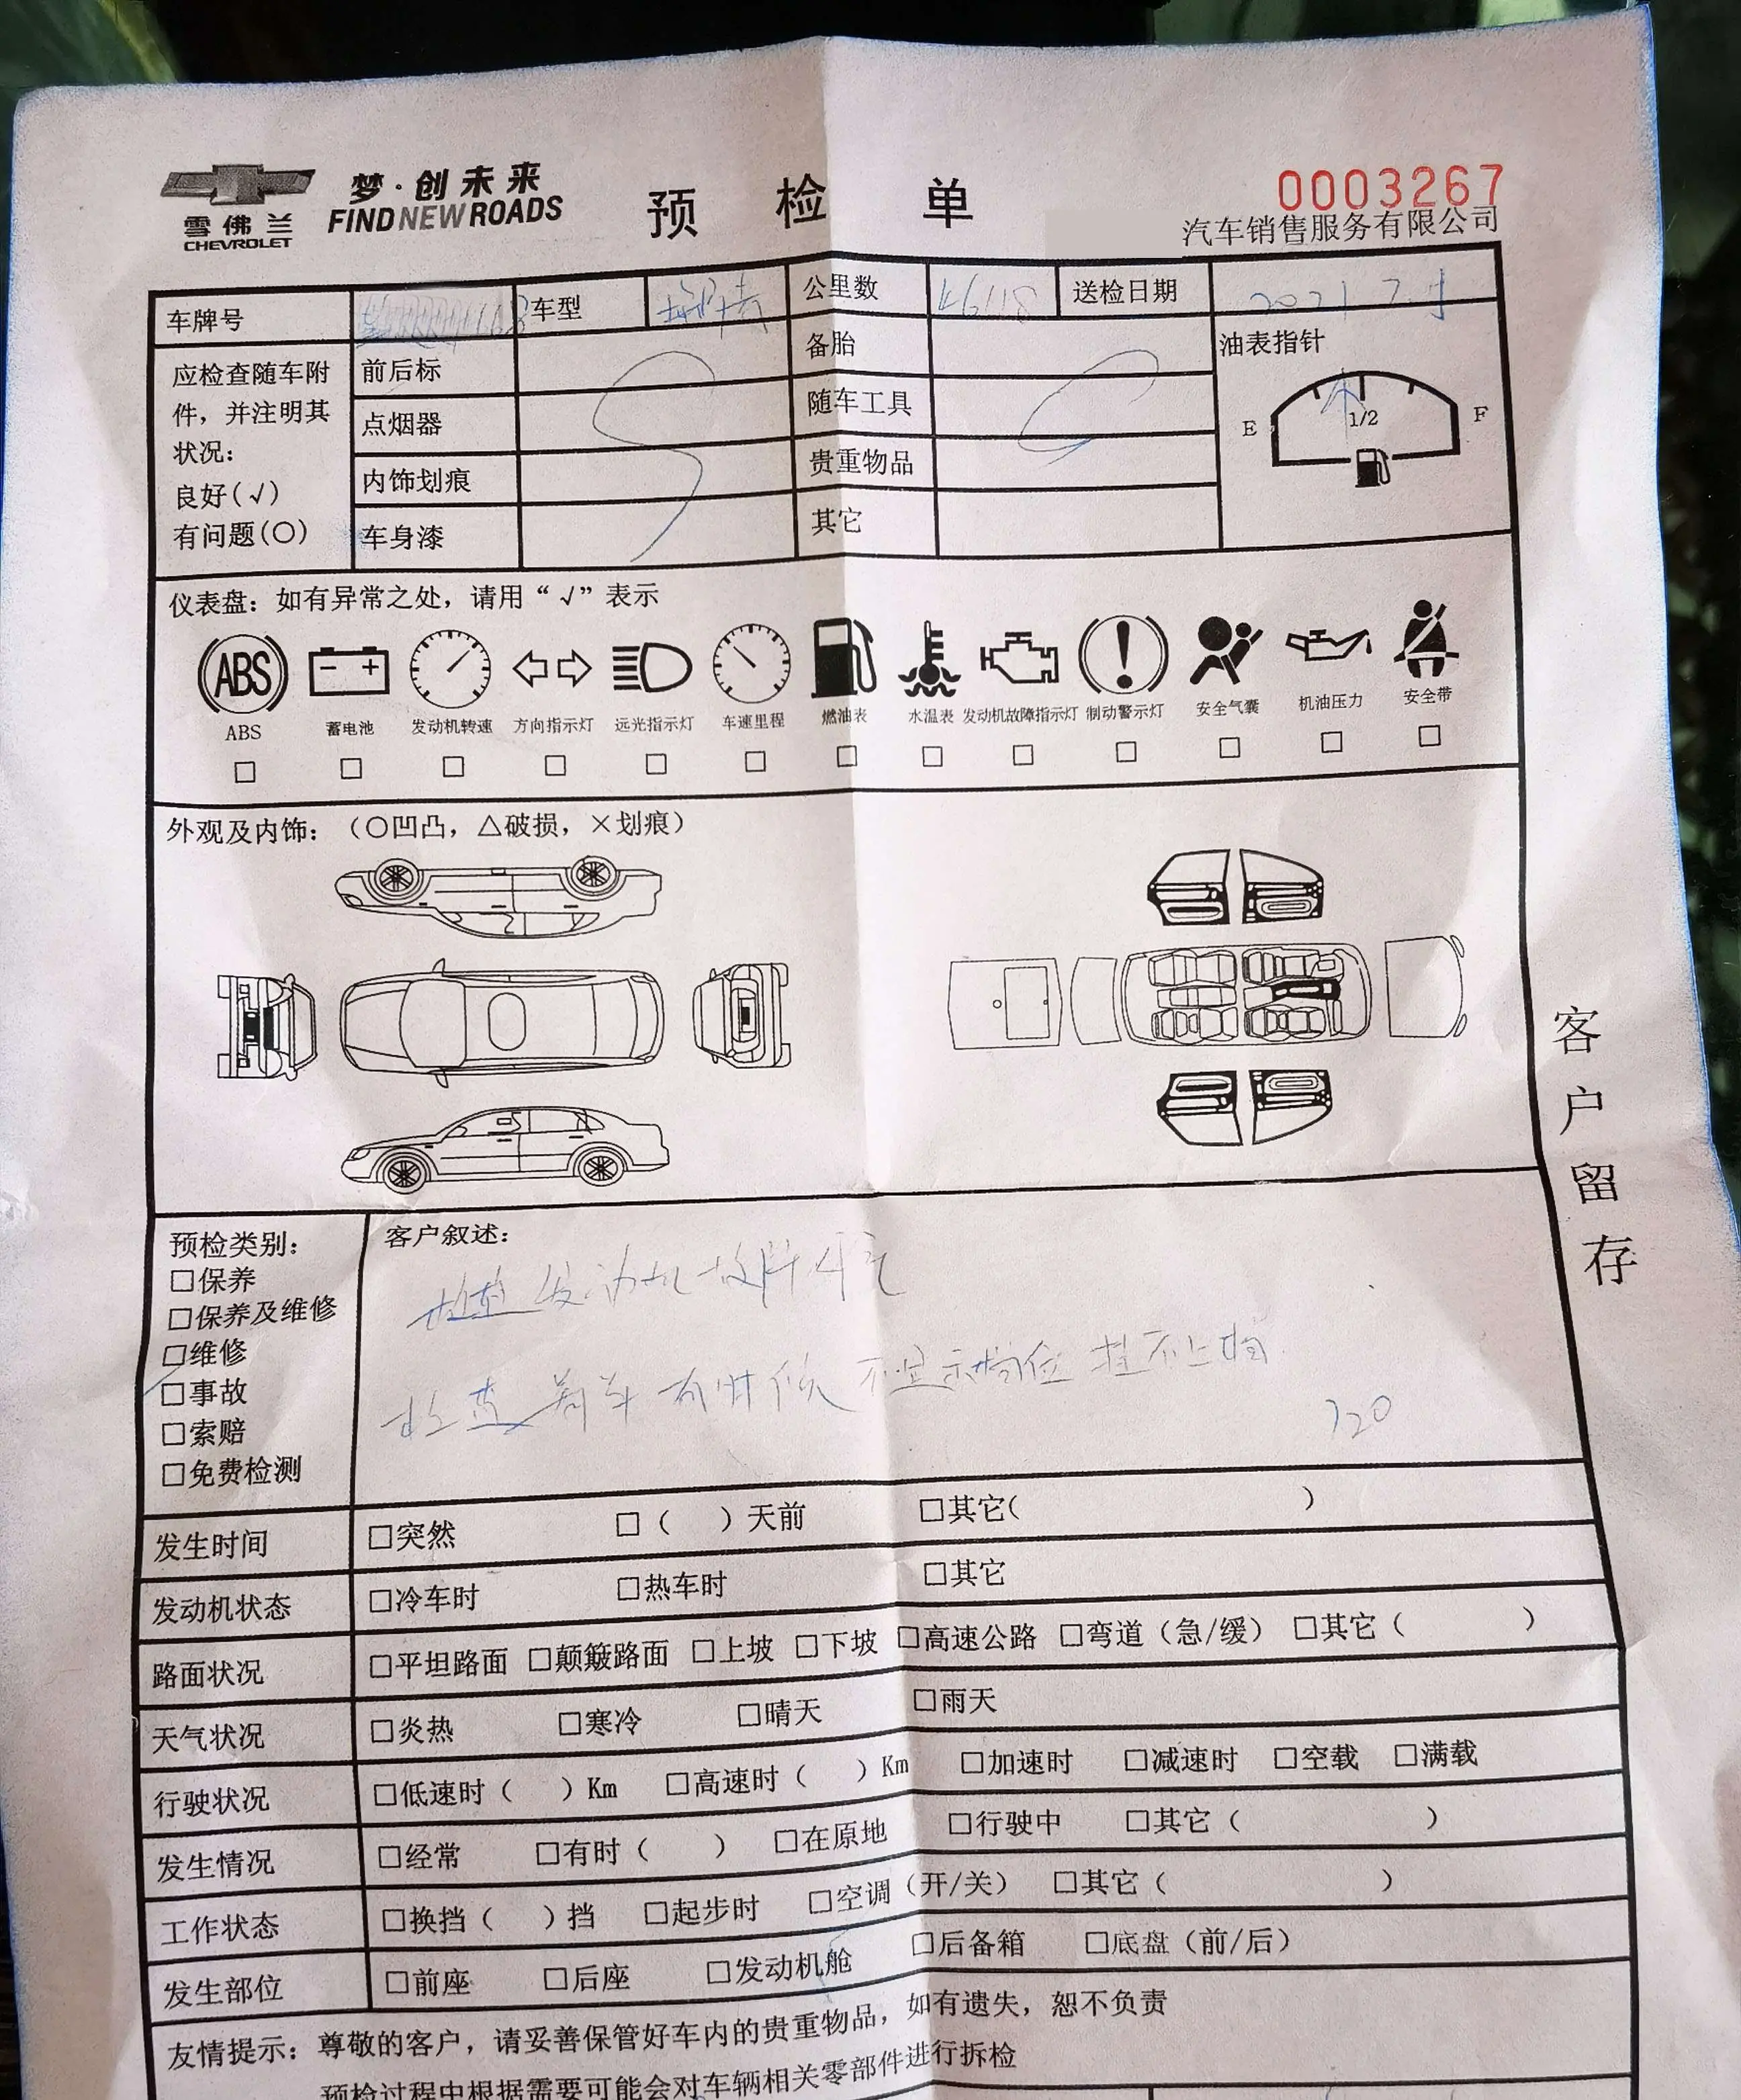 梦·创未来
FIND NEW ROADS
雪佛兰
CHEVROLET
预检单
0003267
汽车销售服务有限公司
车牌号 车型 公里数 46118 送检日期 2021 7.
应检查随车附件,并注明其状况:
良好(√)
有问题(○)
前后标
点烟器
内饰划痕
车身漆
备胎
随车工具
贵重物品
其它
油表指针
E 1/2 F
仪表盘:如有异常之处,请用“√”表示
ABS
ABS 蓄电池 发动机转速 方向指示灯 远光指示灯 车速里程 燃油表 水温表 发动机故障指示灯 制动警示灯 安全气囊 机油压力 安全带
□ □ □ □ □ □ □ □ □ □ □ □ □
外观及内饰:(○凹凸,△破损,×划痕)
客户留存
预检类别:
□保养
□保养及维修
□维修
□事故
□索赔
□免费检测
客户叙述:
检查发动机故障灯亮
检查着车有时候不显示档位 挂不上档
120
发生时间 □突然 □( )天前 □其它( )
发动机状态 □冷车时 □热车时 □其它
路面状况 □平坦路面 □颠簸路面 □上坡 □下坡 □高速公路 □弯道(急/缓) □其它( )
天气状况 □炎热 □寒冷 □晴天 □雨天
行驶状况 □低速时( )Km □高速时( )Km □加速时 □减速时 □空载 □满载
发生情况 □经常 □有时( ) □在原地 □行驶中 □其它( )
工作状态 □换挡( )挡 □起步时 □空调(开/关) □其它( )
发生部位 □前座 □后座 □发动机舱 □后备箱 □底盘(前/后)
友情提示:尊敬的客户,请妥善保管好车内的贵重物品,如有遗失,恕不负责
预检过程中根据需要可能会对车辆相关零部件进行拆检